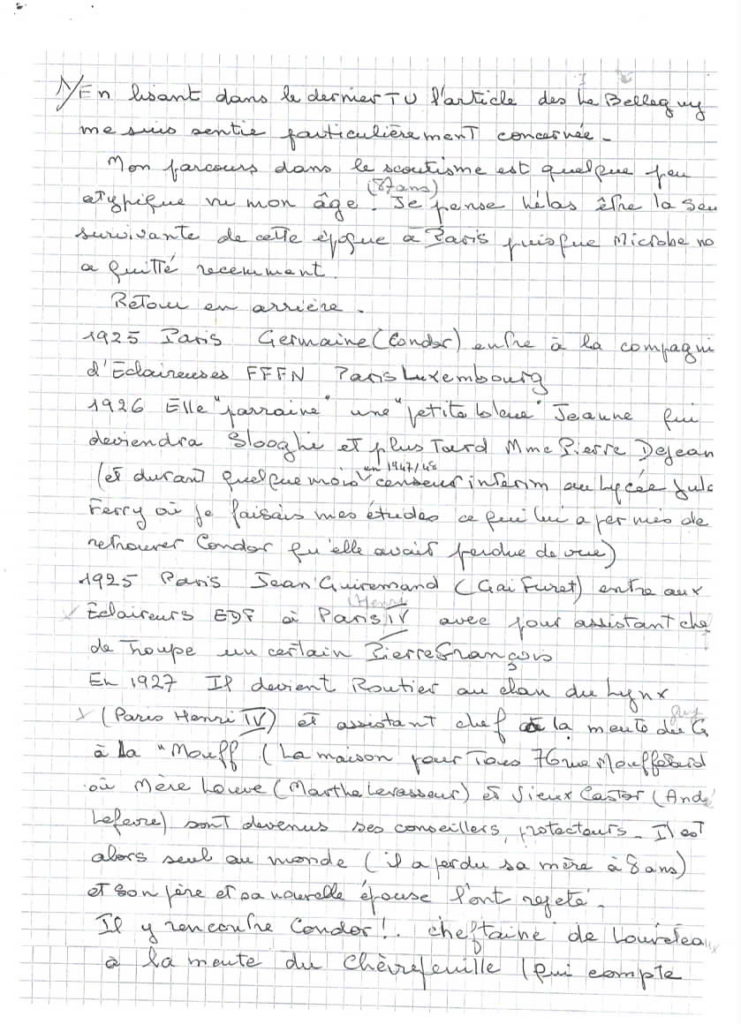 1/ En lisant dans le dernier TU l'article des Le Belleguy
me suis sentie particulièrement concernée.
Mon parcours dans le scoutisme est quelque peu
(87ans)
atypique vu mon âge. Je pense hélas être la seu
survivante de cette époque à Paris puisque Microbe no
a quitté recemment.
Retour en arrière.
1925 Paris Germaine (Condor) entre à la compagni
d'Eclaireuses FFFN Paris Luxembourg
1926 Elle "parraine" une "petite bleue" Jeanne qui
deviendra Slooghi et plus Tard Mme Pierre Dejean
en 1947/48
(et durant quelque mois censeur interim au Lycée Jule
Ferry où je faisais mes études ce qui lui a permis de
retrouver Condor qu'elle avait perdue de vue)
1925 Paris Jean Guiremand (Gai Furet) entre aux
Henri
Eclaireurs EDF à Paris IV avec pour assistant che
de Troupe un certain Pierre François
En 1927 Il devient Routier au clan du Lynx
(Paris Henri IV) et assistant chef à la meute du G
à la "Mouff (La maison pour Tous 76 rue Mouffetard
où Mère Louve (Marthe Levasseur) et Vieux Castor (André
Lefevre) sont devenus ses conseillers, protecteurs. Il est
alors seul au monde (il a perdu sa mère à 8 ans)
et son père et sa nouvelle épouse l'ont rejeté.
Il y rencontre Condor!. cheftaine de Louveteaux
à la meute du Chèvrefeuille (qui compte